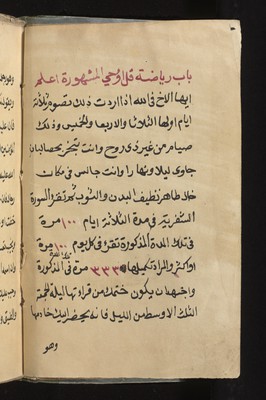 باب رياضة قل اوحي المشهورة اعلم
ايها الاخ في الله اذا اردت ذلك تصوم ثلاثة
ايام اولها الثلاثا والاربعا والخميس وذلك
صيام من غير ذي روح وانت تبخر بحصالبان
جاوى ليلا ونهارا وانت جالس في مكان
خلا طاهر نظيف البدن والثوب ثم تقرؤ السورة
الشريفة في مدة الثلاثة ايام ١٠٠٠ مرة
في تلك المدة المذكورة تقرؤ في كل يوم ١٠٠ مرة
او اكثر والمراد تكميلها ٣٣٣ مرة في المدة المذكورة
واجتهد ان يكون ختمك من قراتها ليلة الجمعة
الثلث الاوسط من الليل فانه يحضر اليك خادمها
وهو